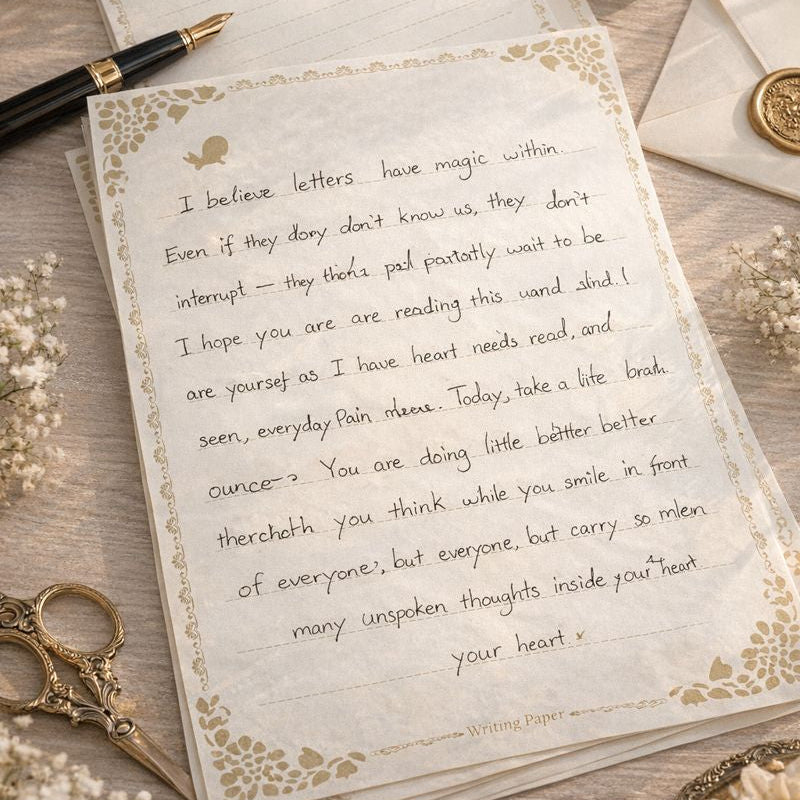 I believe letters have magic within.
Even if they don't know us, they don't
interrupt — they wait to be
I hope you are are reading this
are yourself as I have heart needs read, and
seen, everyday Pain. Today, take a life
ounce You are doing little better better
you think while you smile in front
of everyone, but everyone, but carry so
many unspoken thoughts inside your heart
your heart.
Writing Paper